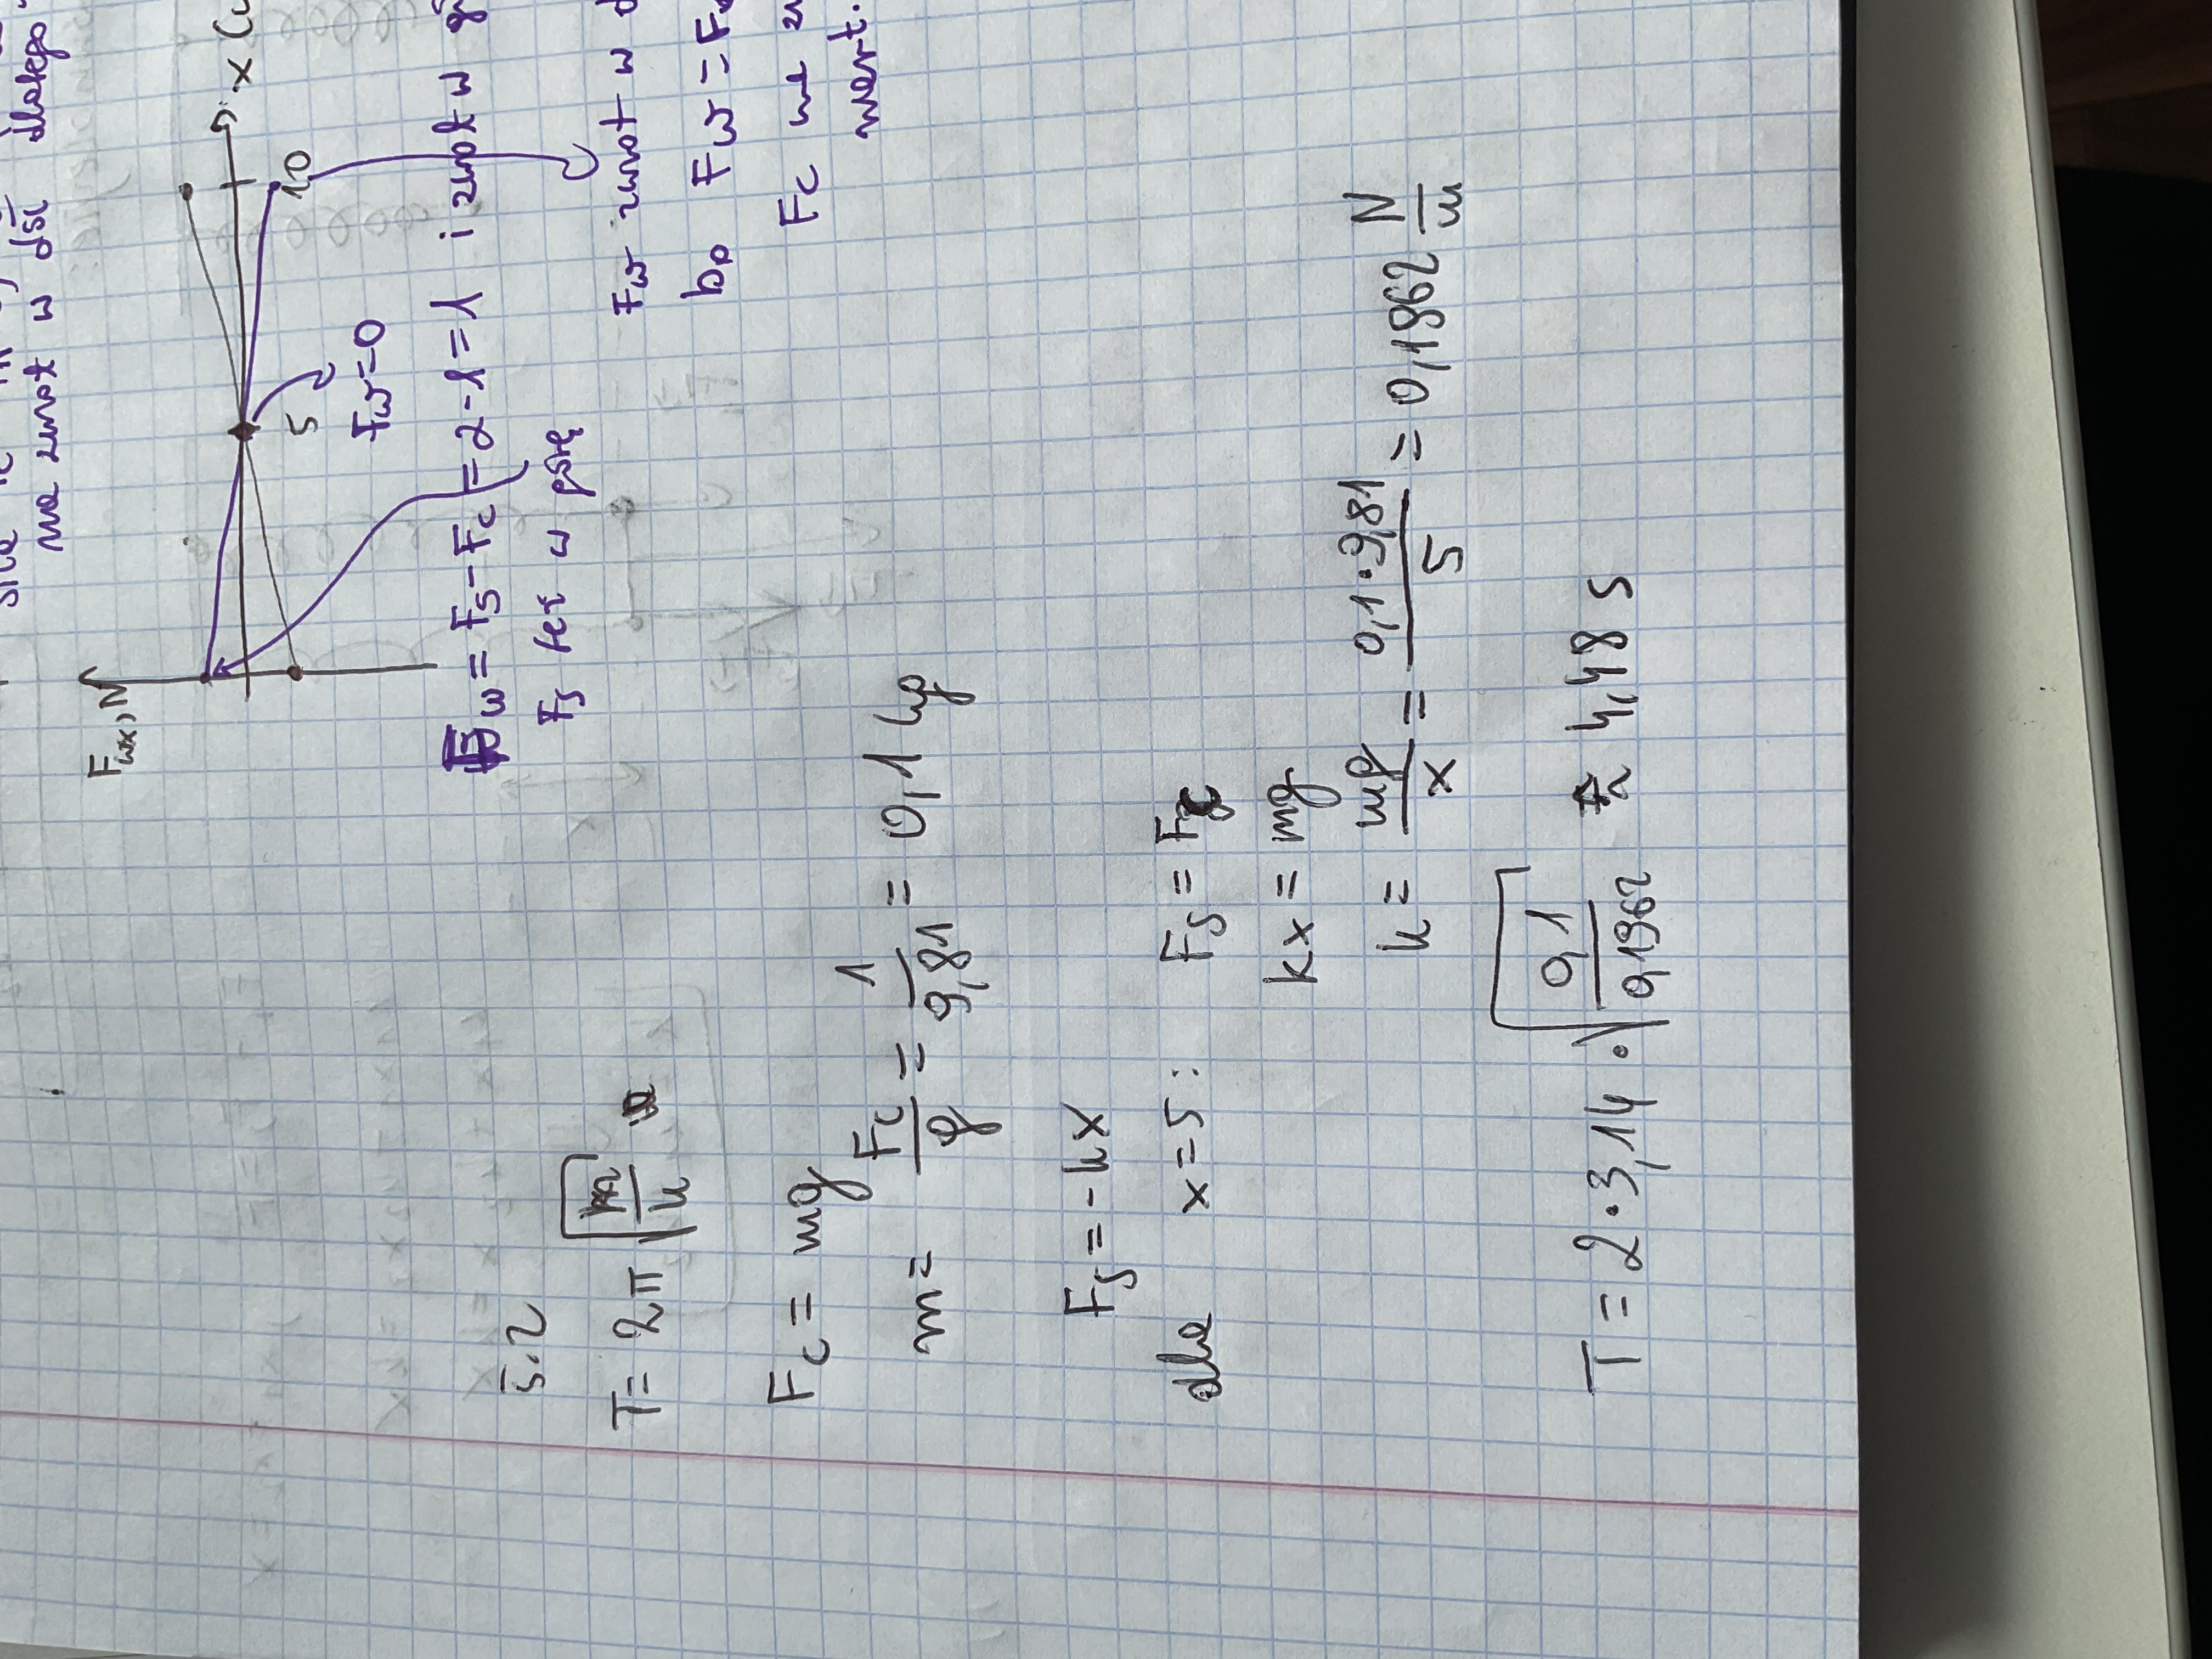 siłę
me zwrot w dół dlatego
F_wx, N
x
5
10
F_w = 0
F_w = F_s - F_c = 2 - 1 = 1 i zwrot w
F_s też w górę
F_w zwrot w
bo F_w = F
F_c me
wart.
5.2
T = 2π √(m/k)
F_c = mg
m = F_c/g = 1/9,81 = 0,1 kg
F_s = -kx
dla x = 5 : F_s = F_c
kx = mg
k = mg/x = 0,1 · 9,81/5 = 0,1962 N/m
T = 2 · 3,14 · √(0,1/0,1962) ≈ 4,48 s